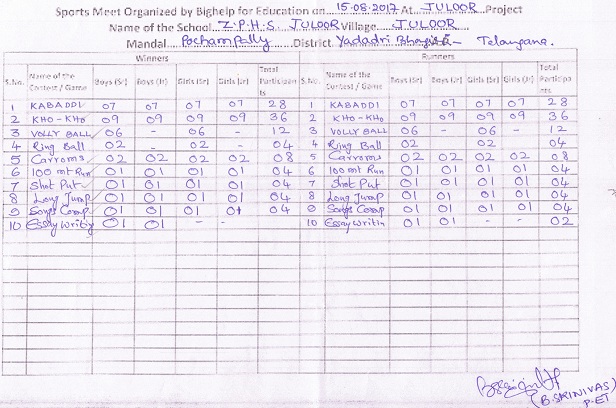 Sports Meet Organized by Bighelp for Education on 15.08.2017 At JULOOR Project
Name of the School Z.P.H.S. JULOOR Village JULOOR
Mandal Pochampally District Yadadri Telangana.
Winners Runners
S.No. Name of the Contest / Game Boys (Sr) Boys (Jr) Girls (Sr) Girls (Jr) Total Participants S.No. Name of the Contest / Game Boys (Sr) Boys (Jr) Girls (Sr) Girls (Jr) Total Participants
1 KABADDI 07 07 07 07 28 1 KABADDI 07 07 07 07 28
2 KHO-KHO 09 09 09 09 36 2 KHO-KHO 09 09 09 09 36
3 VOLLY BALL 06 - 06 - 12 3 VOLLY BALL 06 - 06 - 12
4 Ring Ball 02 - 02 - 04 4 Ring Ball 02 02 04
5 Carroms 02 02 02 02 08 5 Carroms 02 02 02 02 08
6 100 mt Run 01 01 01 01 04 6 100 mt Run 01 01 01 01 04
7 Shot Put 01 01 01 01 04 7 Shot Put 01 01 01 01 04
8 Long Jump 01 01 01 01 04 8 Long Jump 01 01 01 01 04
9 Songs Comp 01 01 01 01 04 9 Songs Comp 01 01 01 01 04
10 Essay Writing 01 01 - - 10 Essay Writin 01 01 - - 02
(B.SRINIVAS)
P.ET